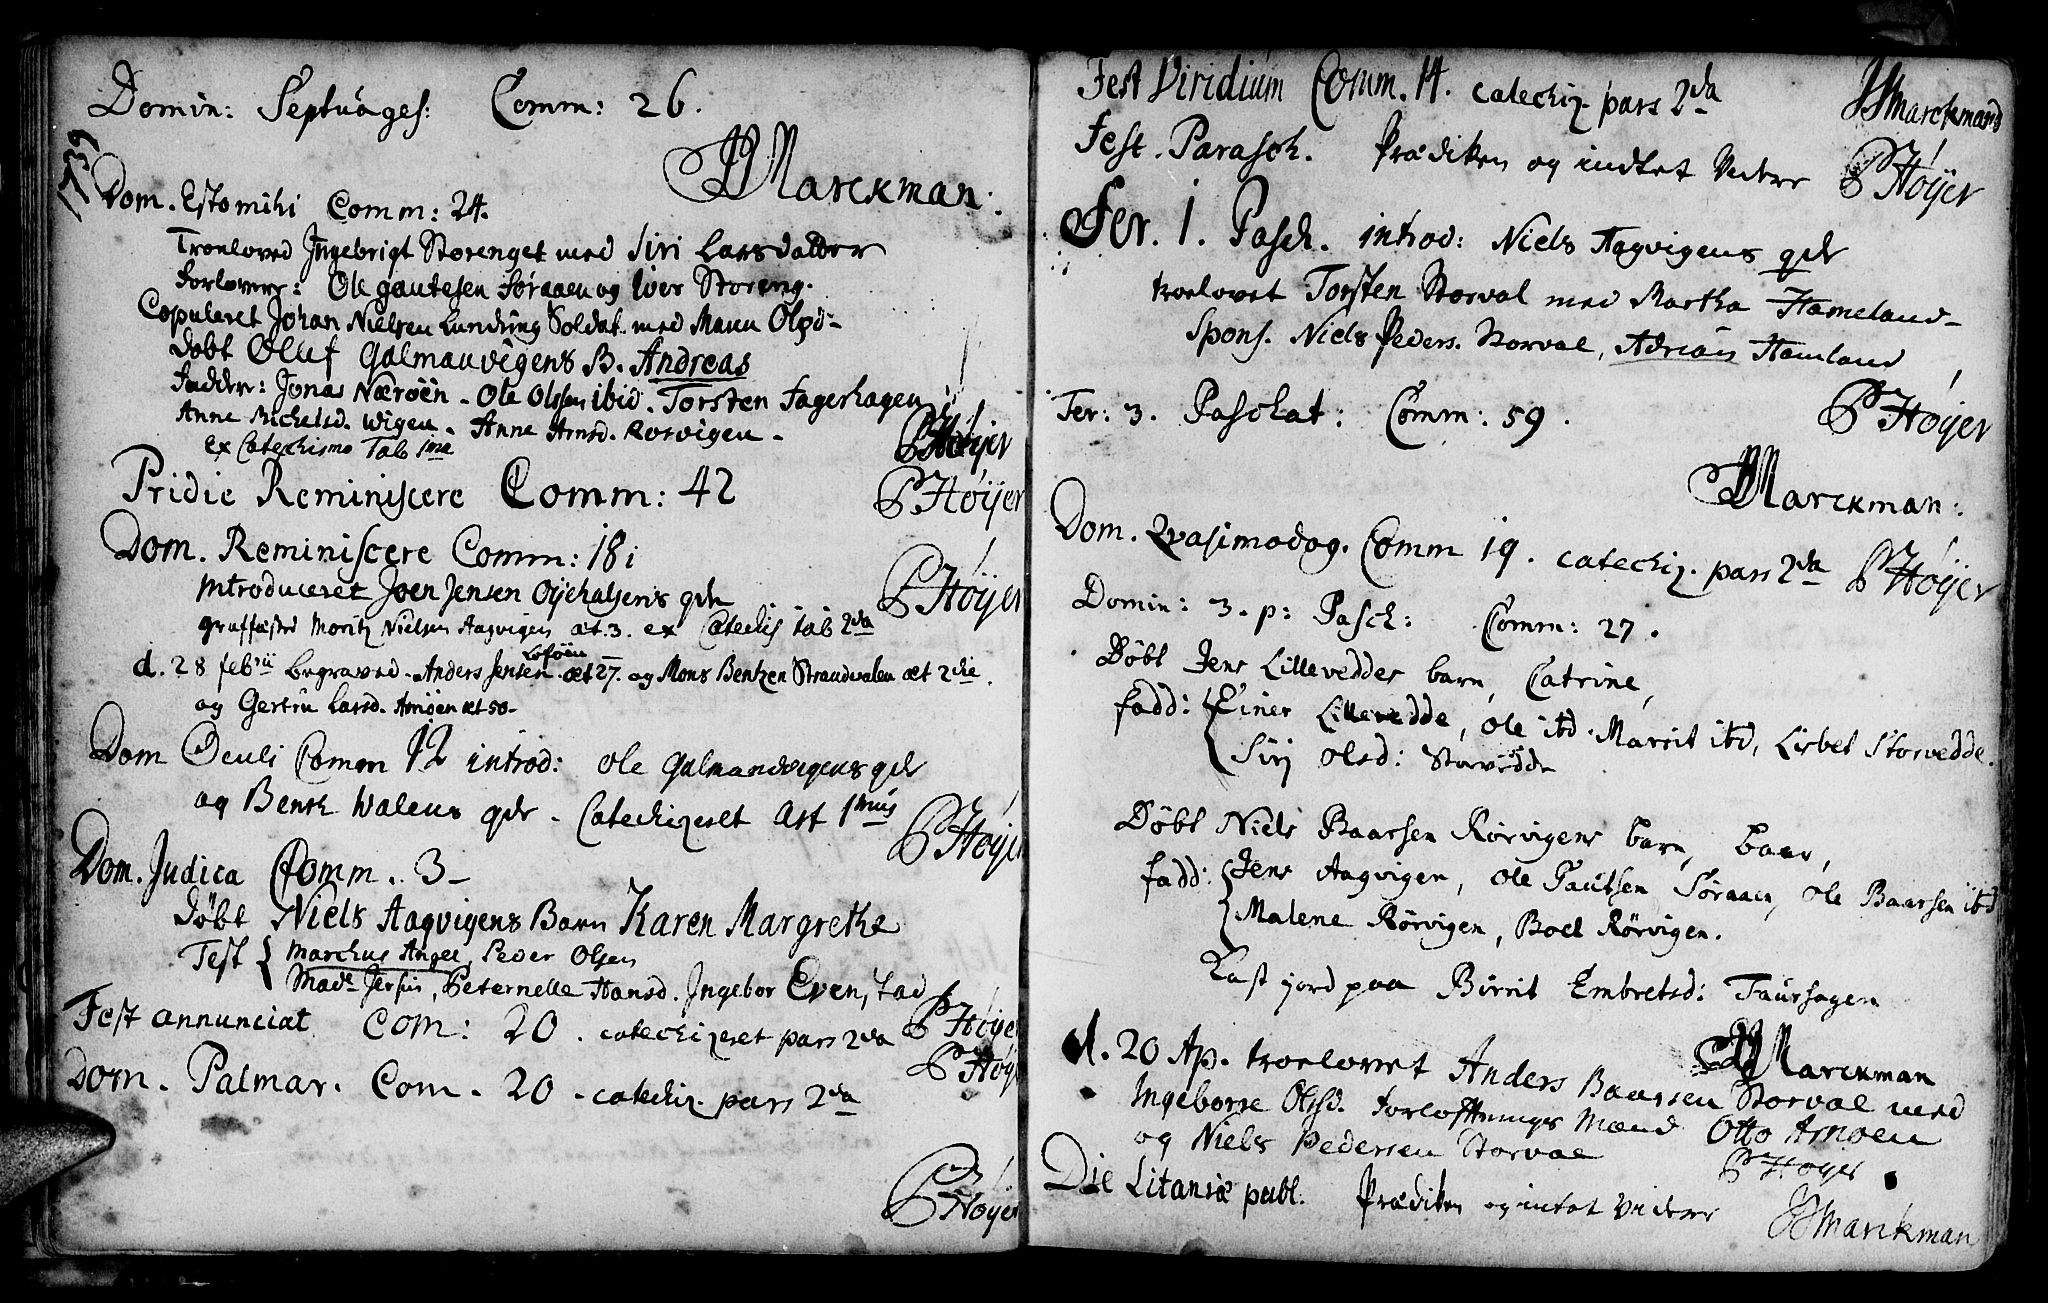 Domin: Septuages: Comm: 26.
Marckman:
1739
Dom. Estomihi Comm: 24.
Troeloved Ingebrigt Storenget med Siri Larsdatter
forlovere: Ole Gautesen Søraaen og Iver Storeng.
Copuleret Johan Nielsen Lundring Soldat med Maren Olsd-
Døbt Oluf Galmanvigens B. Andreas
Faddere: Jonas Nærøen - Ole Olssen ibid. Torsten Fagerhagen
Anne Michelsd. Wigen. Anne Arnsd. Rosvigen -
Ex Catechismo Tab 1ma
PHøyer
Pridie Reminiscere Comm: 42
PHøyer
Dom. Reminiscere Comm: 18
Introduceret Joen Jensen Oyehalsens qde
graffæstd Moritz Nielsen Aagvigen æt. 3. ex Catechis tab 2da
PHøyer
Loføen
d. 28 febrii begraved. Anders Jensen æt 27. og Mons Bentzen Strandvalen æt 2die.
og Gertru Larsd. Arnøen æt 50-
Dom Oculi Comm 12 introd: Ole Galmandvigens qde
og Bensk Walens qde - Catechizeret Art 1mus
PHøyer
Dom. Judica Comm. 3-
Døbt Niels Aagvigens Barn Karen Margrethe
Test { Marchus Angel, Peder Olsen
Made Jersin, Peternelle Hansd. Ingebor Evenstad
PHøyer
Fest annunciat Com: 20. catechizeret pars 2da
PHøyer
Dom. Palmar. Com. 20 - catechiz. pars 2da
PHøyer
Fest Viridium Comm. 14. catechiz pars 2da
Marckmand
Fest. Parasch. Prædiken og indtet Videre
PHøyer
Fer. 1. Pasch. introd: Niels Aagvigens qde
troelovet Torsten Storval med Martha Hameland-
Spons. Niels Peders. Storval, Adrian Hamland
PHøyer
Fer: 3. Paschat: Comm: 59.
Marckman:
Dom. Qvasimodog. Comm 19. catechiz. pars 2da
PHøyer
Domin: 3. p: Pasch: Comm: 27.
Døbt Jens Lilleveddes barn, Catrine,
fadd: { Einer Lillevedde, Ole ibd. Marrit ibd, Lisbet Storvedde.
Sirj Olsd: Storvedde
Døbt Niels Baarsen Rørvigens barn, Baar,
fadd: { Jens Aagvigen, Ole Pautsen Søraaen, Ole Baarsen ibd
Malene Rørvigen, Boel Rørvigen.
Kast jord paa Birrit Embretsd: Faurhagen
Marckman
d. 20 Ap. troelovet Anders Baarsen Storval med
Ingeborre Olsd. forloftnings Mænd Otto Arnøen
og Niels Pedersen Storval
PHøyer
Die Litaniæ publ. Prædiken og intet Videre
Marckman